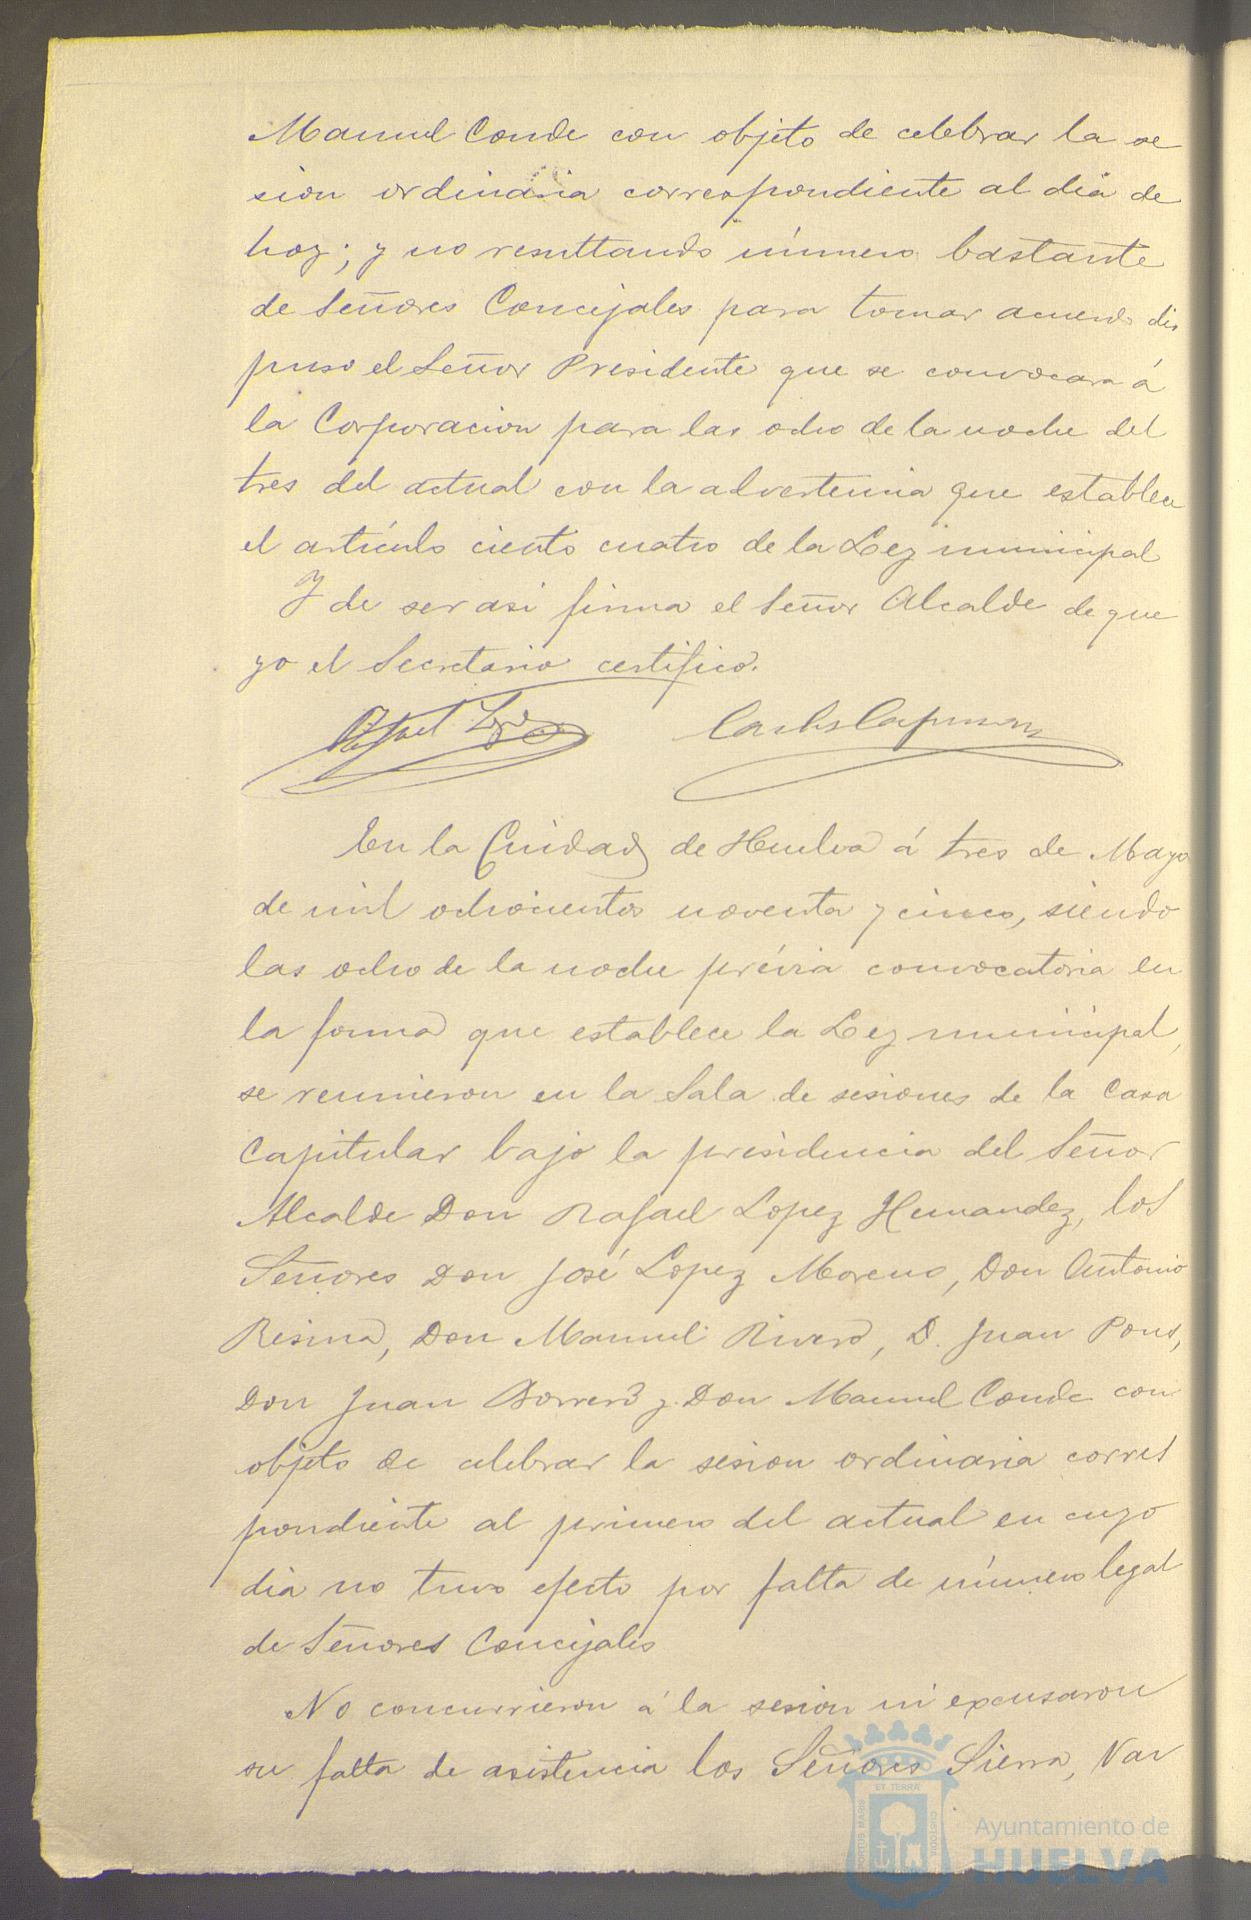 Manuel Conde con objeto de celebrar la se
sion ordinaria correspondiente al dia de
hoy; y no resultando número bastante
de Señores Concejales para tomar acuerdo dis
puso el Señor Presidente que se convocara á
la Corporacion para las ocho de la noche del
tres del actual con la advertencia que establece
el artículo ciento cuatro de la Ley municipal
Y de ser asi firma el Señor Alcalde de que
yo el Secretario certifico.
Rafael Lopez
En la Ciudad de Huelva á tres de Mayo
de mil ochocientos noventa y cinco, siendo
las ocho de la noche prévia convocatoria en
la forma que establece la Ley municipal,
se reunieron en la Sala de sesiones de la Casa
Capitular bajo la presidencia del Señor
Alcalde Don Rafael Lopez Hernandez, los
Señores Don José Lopez Moreno, Don Antonio
Resina, Don Manuel Rivero, D. Juan Pons,
Don Juan Borrero y Don Manuel Conde con
objeto de celebrar la sesion ordinaria corres
pondiente al primero del actual en cuyo
dia no tuvo efecto por falta de número legal
de Señores Concejales
No concurrieron á la sesion ni excusaron
su falta de asistencia los Señores Sierra, Var
ET TERRÆ
PORTUS MARIS
CUSTODIA
Ayuntamiento de
HUELVA